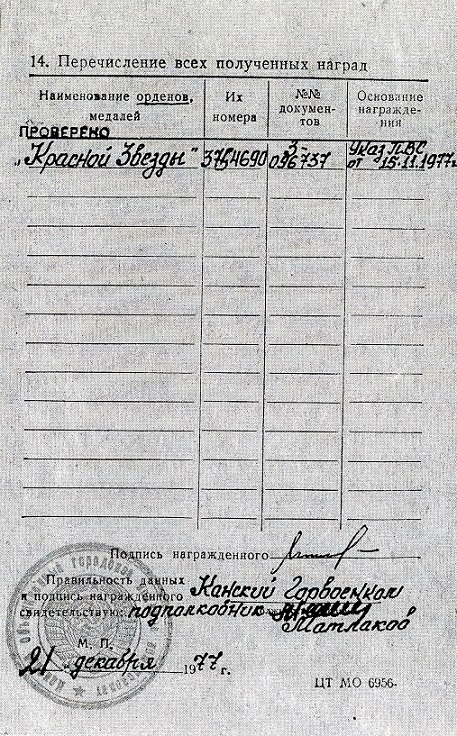 14. Перечисление всех полученных наград
Наименование орденов, медалей
Их номера
№№ документов
Основание награждения
ПРОВЕРЕНО
„Красной Звезды" 3754690 З-096737 Указ ПВС от 15.11.1977г.
Подпись награжденного
Правильность данных
и подпись награжденного Канский Горвоенком
свидетельствую: подполковник
Матлаков
М. П.
21 „ декабря 1977 г.
ЦТ МО 6956-